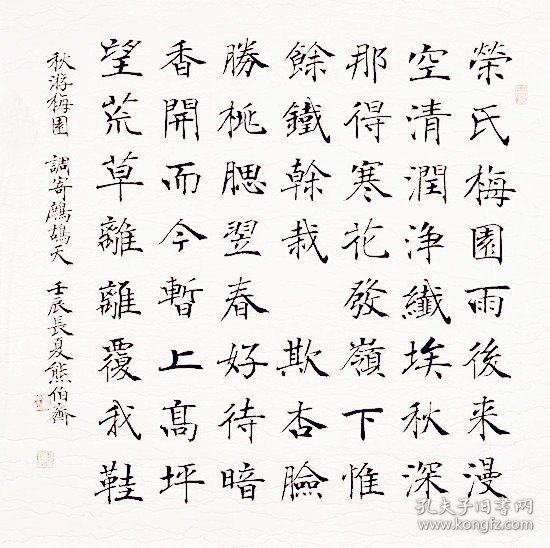 榮氏梅園雨後来漫
空清潤浄纖埃秋深
那得寒花發嶺下惟
餘鐵幹栽 欺杏臉
勝桃腮翌春好待暗
香開而今暫上高坪
望荒草離離覆我鞋
秋游梅園 調寄鷓鴣天 壬辰長夏熊伯齊
孔夫子旧书网
www.kongfz.com